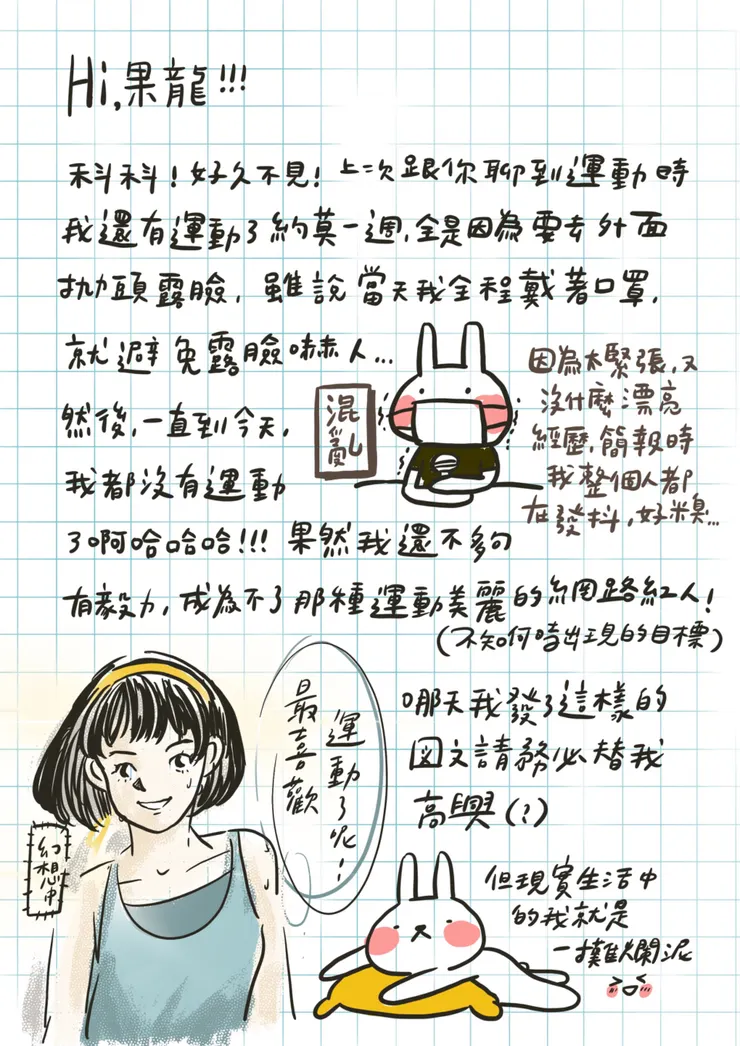 Hi,果龍!!!
科科!好久不見!上次跟你聊到運動時
我還有運動了約莫一週,全是因為要去外面
拋頭露臉,雖說當天我全程戴著口罩,
就避免露臉嚇人...
然後,一直到今天,
我都沒有運動
了啊哈哈哈!!!果然我還不夠
有毅力,成為不了那種運動美麗的網路紅人!
(不知何時出現的目標)
混亂
因為太緊張,又
沒什麼漂亮
經歷,簡報時
我整個人都
在發抖,好糗...
哪天我發了這樣的
圖文請務必替我
高興(?)
運動了呢!
最喜歡
幻想中
但現實生活中
的我就是
一攤爛泥